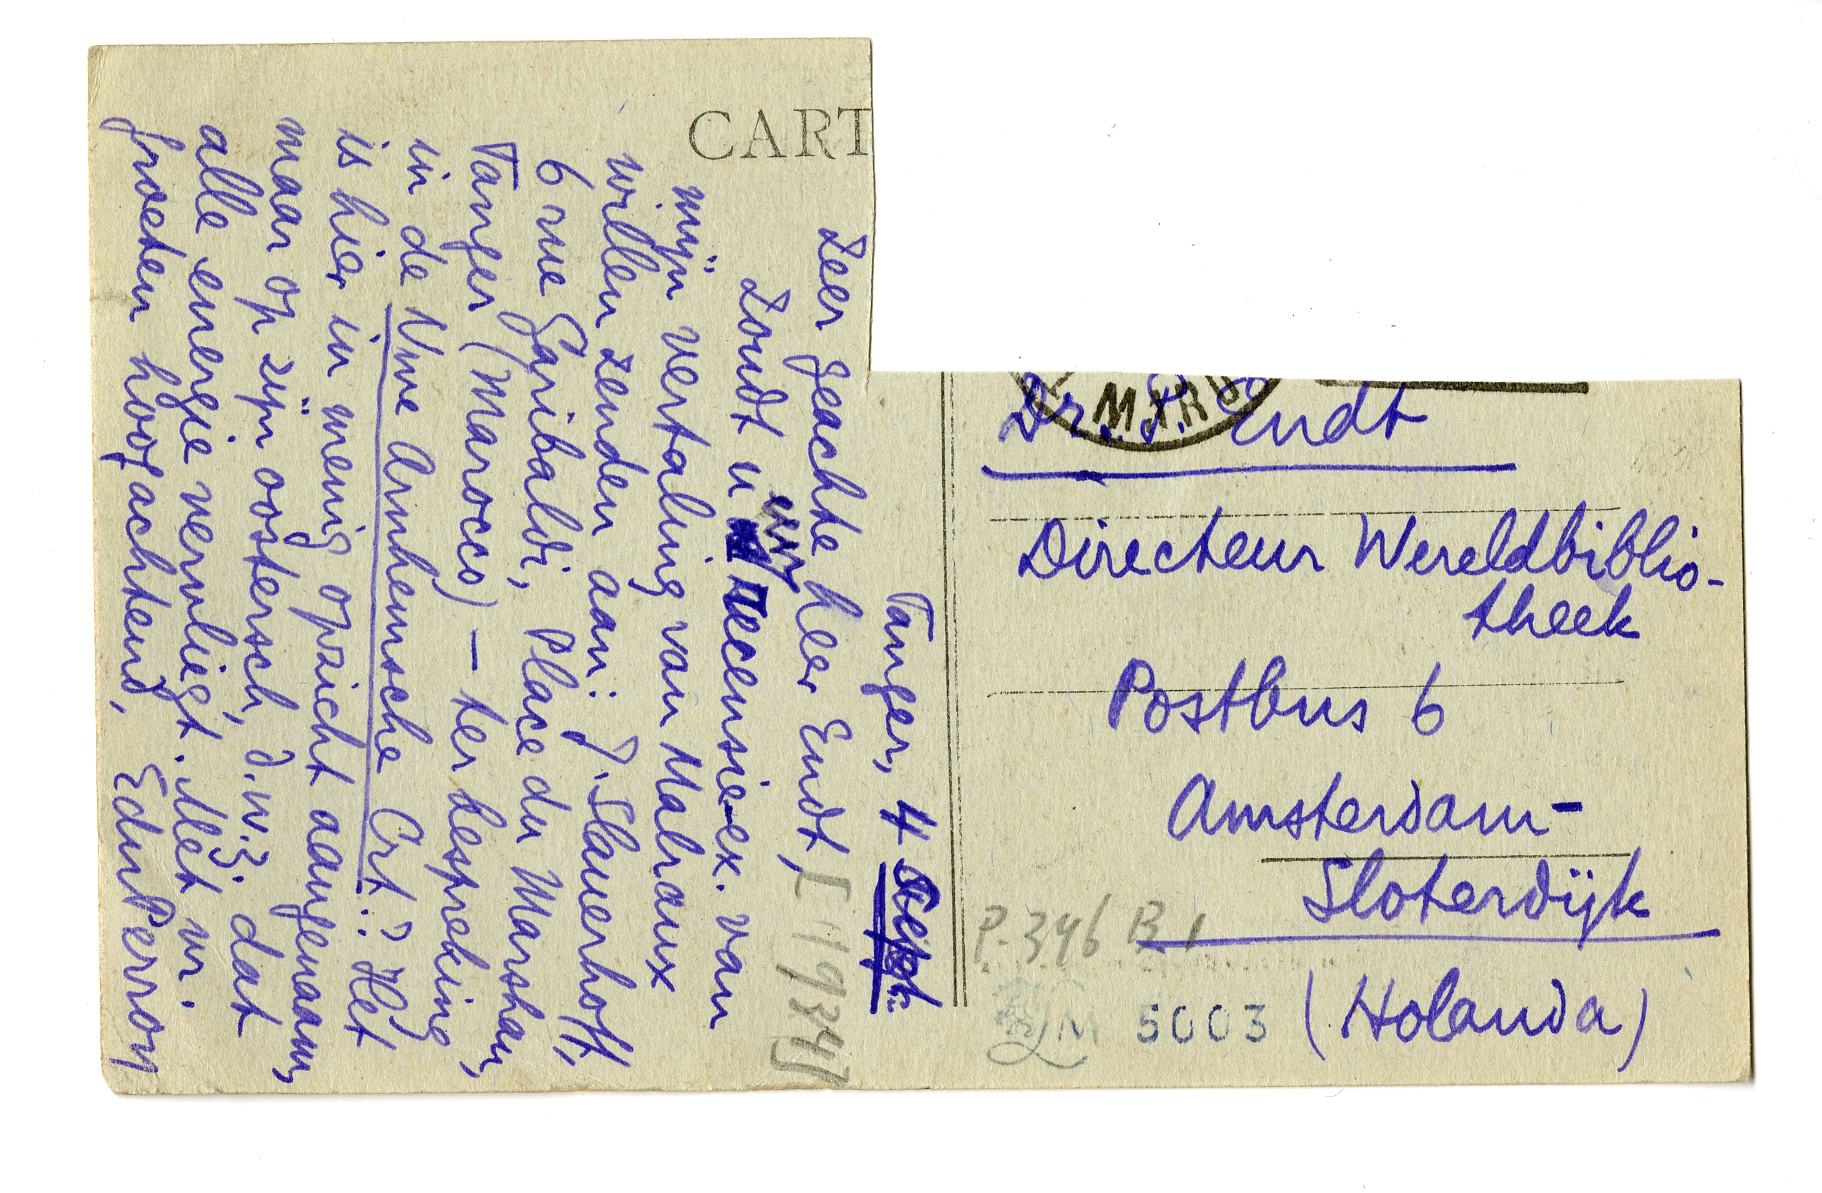 CART
Tanger, 4 Sept.
[1934]
Zeer geachte heer Endt,
Zoudt u mij recensie-ex. van
mijn vertaling van Malraux
willen zenden aan: J. Slauerhoff,
6 rue Garibaldi, Place du Marshan,
Tanger (Marocco) — ter bespreking
in de Nwe Arnhemsche Crt.? Het
is hier in menig opzicht aangenaam,
maar op zijn oostersch, d.w.z. dat
alle energie vervliegt. Met vr.
groeten hoogachtend, EduPerron
Dr. P. Endt
Directeur Wereldbiblio-
theek
Postbus 6
Amsterdam-
Sloterdijk
(Holanda)
P.346 B 1
LM 5003